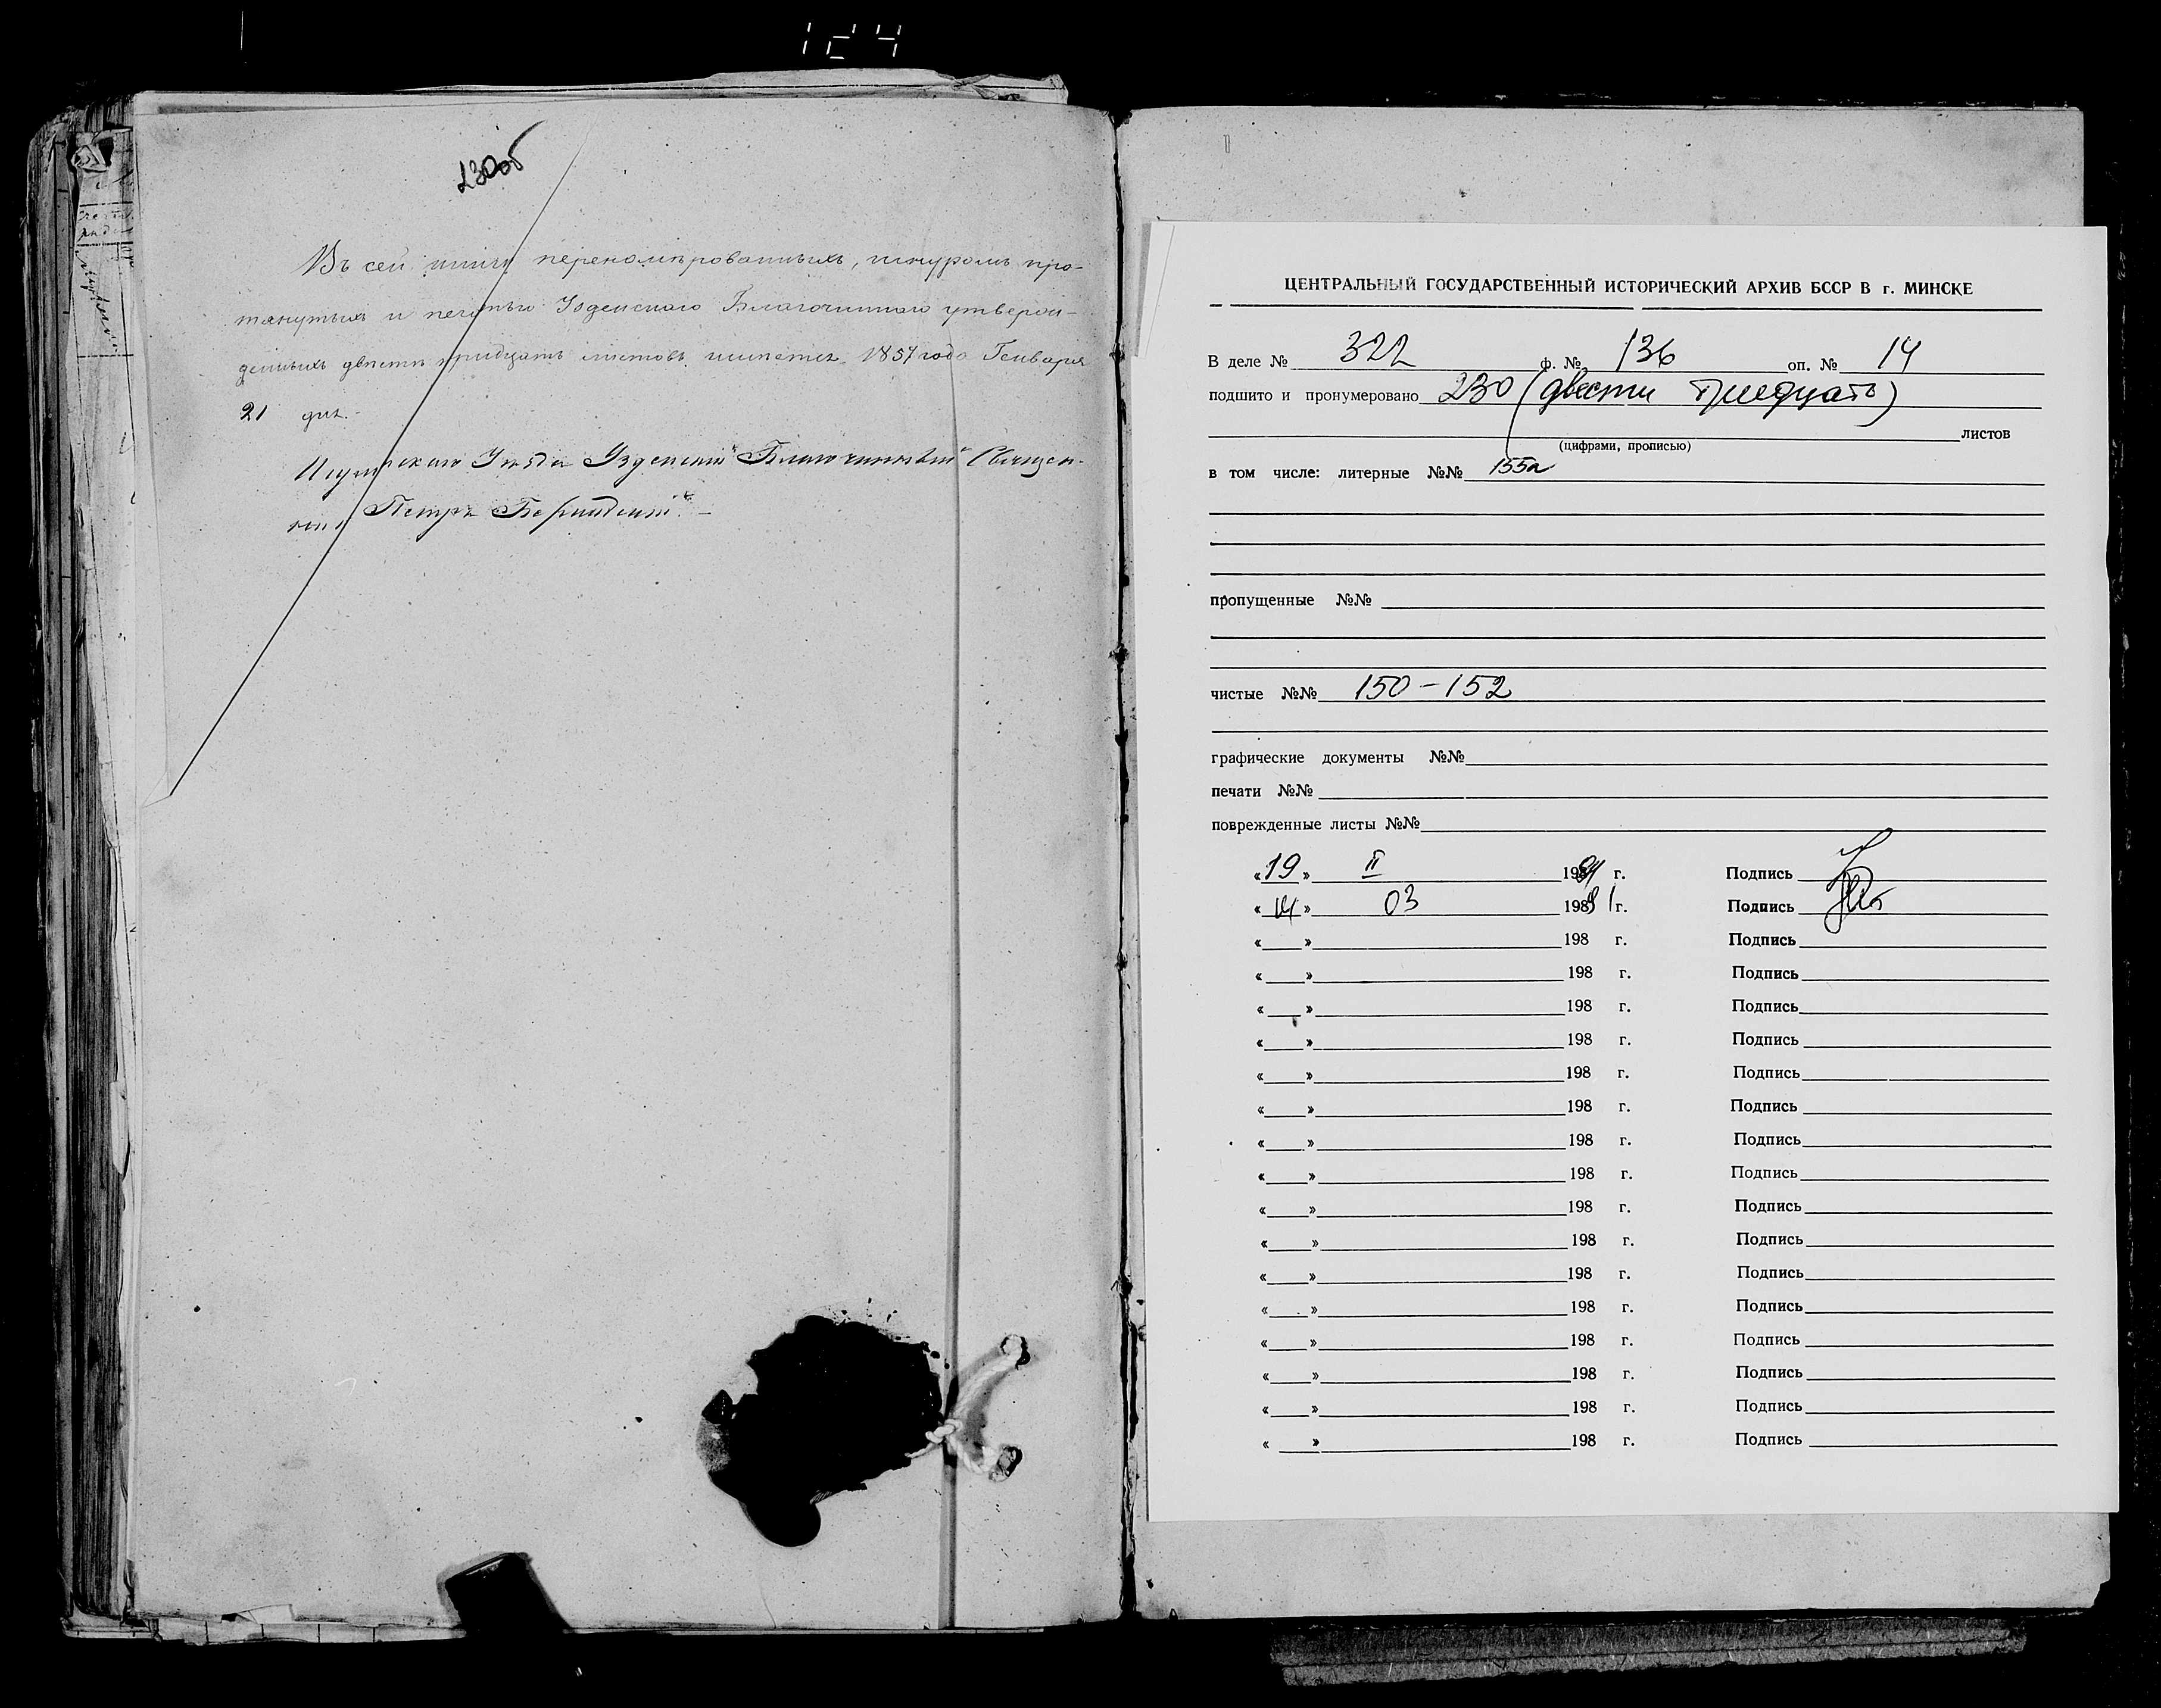 124
230об
Въ сей книгѣ переномѣрованныхъ, шнуромъ про-
тянутыхъ и печатью Узденскаго Благочиннаго утверж-
денныхъ двѣсти тридцать листовъ имѣется. 1857 года Генваря
21 дня.-
Игуменскаго Уѣзда Узденскій Благочинный Священ-
никъ Петръ
ЦЕНТРАЛЬНЫЙ ГОСУДАРСТВЕННЫЙ ИСТОРИЧЕСКИЙ АРХИВ БССР В г. МИНСКЕ
В деле № 322 ф. № 136 оп. № 14
подшито и пронумеровано 230 (двести тридцать)
листов
(цифрами, прописью)
в том числе: литерные №№ 155а
пропущенные №№
чистые №№ 150-152
графические документы №№
печати №№
поврежденные листы №№
«19» II 1991 г. Подпись
«14» 03 1991 г. Подпись
«» 198 г. Подпись
«» 198 г. Подпись
«» 198 г. Подпись
«» 198 г. Подпись
«» 198 г. Подпись
«» 198 г. Подпись
«» 198 г. Подпись
«» 198 г. Подпись
«» 198 г. Подпись
«» 198 г. Подпись
«» 198 г. Подпись
«» 198 г. Подпись
«» 198 г. Подпись
«» 198 г. Подпись
«» 198 г. Подпись
«» 198 г. Подпись